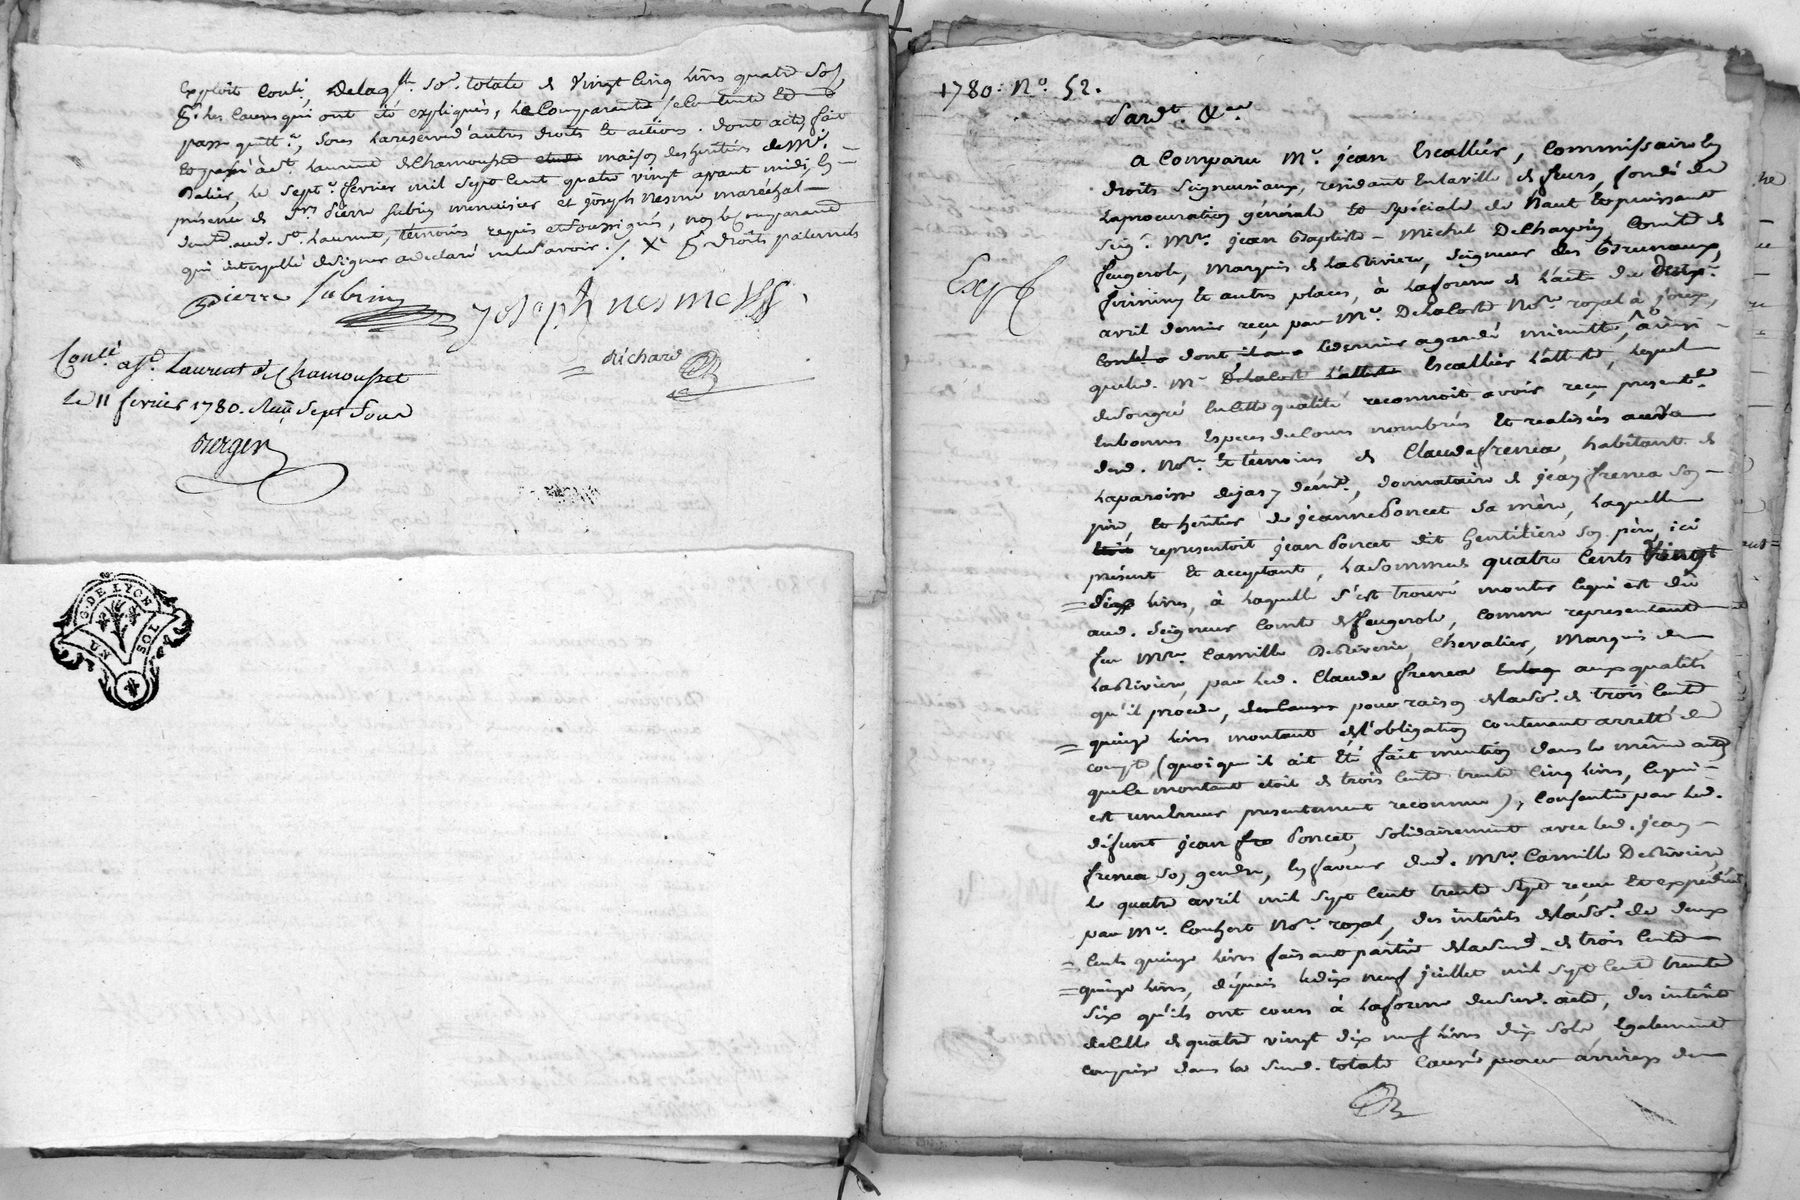 exploit Conti, delaq.lle so.e totale de vingt Cinq livres quatre sols,
p.r les causes qui ont été expliqués, le Comparant se Contente et en
passe quitt.ce, sous la reserve d'autres droits et actions. dont acte, fait
et passé à s.t Laurent de Chamousset maison des heritiers de m.e
le sept.e fevrier mil sept cent quatre vingt avant midi, en
présence de s.rs Pierre Subrin menuisier et joseph nesme maréchal
dud. s.t Laurent, témoins requis et soussignés, non le comparant
qui interpellé de signer a declaré ne le savoir ./. X p.r droits paternels
Pierre Subrin
joseph nesme
Richard
Con.lé à s.t Laurent de Chamousset
le 11 fevrier 1780. Reçu sept sous
Berger
G. DE LYON
UN SOL
1780. N.o 52.
Pard.t &.ca
a Comparu M.e jean Escallier, Commissaire en
droits seigneuriaux, résidant en la ville de feurs, fondé de
la procuration générale et spéciale de haut et puissant
seig.r M.re jean Baptiste-Michel De Charpin, Comte de
feugerole, Marquis de la Riviere, seigneur des Bruneaux,
firminy et autres places, à la forme de l'acte du
avril dernier reçu par M.e Delacoste No.re royal à
dont le dernier a gardé minutte, ainsi
Exp.
que led. M.e Escallier l'atteste, lequel
de son gré en cette qualité reconnoit avoir reçu présent.t
en bonnes especes du cours nombrées et realisées
dud. No.re et témoins de Claude frenea, habitant de
la paroisse de donnataire de jean frenea son
pere et heritier de jeanne Poncet sa mère, laquelle
representoit jean Poncet dit Gentilier son père, ici
présent et acceptant, la somme de quatre Cents Vingt
dix livres, à laquelle s'est trouvé monter ce qui est dû
aud. seigneur Comte de feugerole, comme representant
feu M.re Camille De Riverie, Chevalier, Marquis de
la Riviere, par led. Claude frenea aux qualités
qu'il procede, pour raison de la so.e de trois Cents
quinze livres montant de l'obligation contenant arretté de
compte, (quoiqu'il ait été fait mention dans le même acte
que le montant etoit de trois Cents trente Cinq livres, ce qui
est une erreur presentement reconnue), Consentie par led.
défunt jean Poncet, solidairement avec led. jean
frenea son gendre, en faveur dud. M.re Camille De Riviere,
le quatre avril mil sept Cent trente sept, reçue et expediée
par M.e No.re royal, des interêts de la so.e de deux
Cents quinze livres faisant partie de la susd. de trois Cents
quinze livres, dépuis le dix neuf juillet mil sept Cent trente
six qu'ils ont cours à la forme du susd. acte, des interêts
de celle de quatre vingt dix neuf livres dix sols, également
comprise dans la susd. totale Causée pour arrerages de